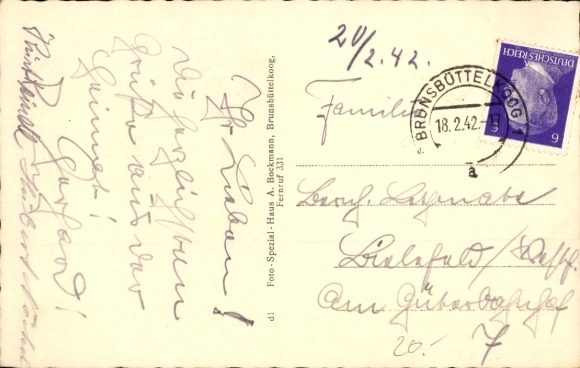 20/2.42.
Ihr Lieben!
Die herzlichsten
Grüße aus der
Heimat!
Gerhard!
Foto-Spezial-Haus A. Bockmann, Brunsbüttelkoog,
Fernruf 331
d1
DEUTSCHES REICH
6 6
BRUNSBÜTTELKOOG 1
18.2.42
a
Familie
Bielefeld / Westf.
Am Güterbahnhof
7
20.-